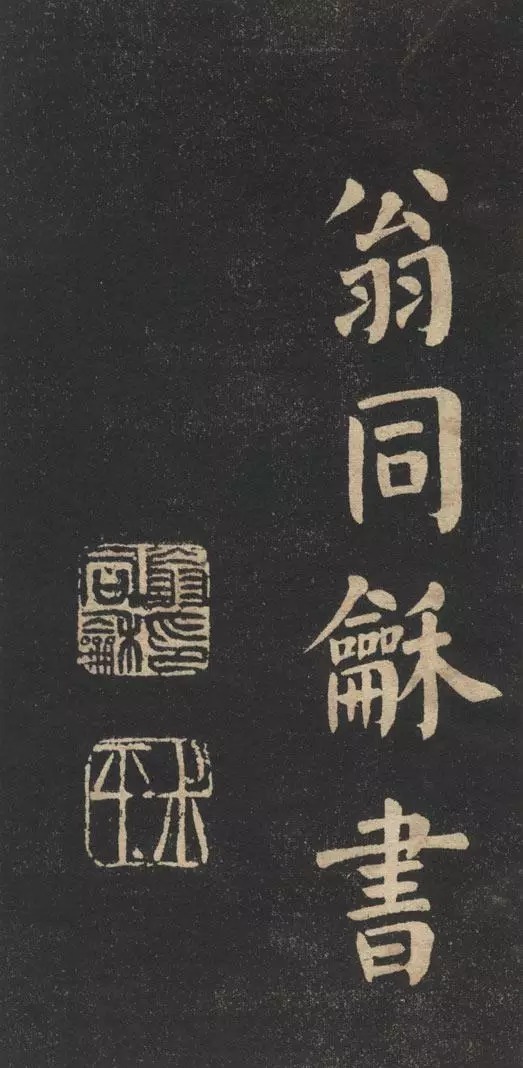 翁同龢書
翁同龢印
叔平